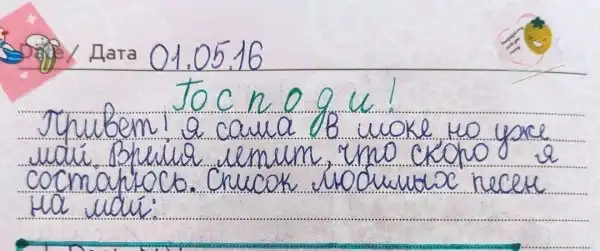 Date/ Дата 01.05.16
Господи!
Привет! Я сама в шоке, но уже
май. Время летит, что скоро я
состарюсь. Список любимых песен
на май: